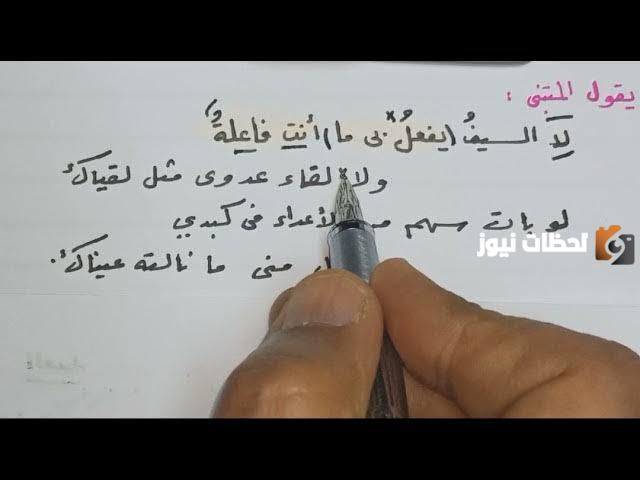 يقول المتنبي :
لا السيفُ (يفعلُ بي ما) أنتِ فاعلةٌ
ولا لقاء عدوى مثل لقياكِ
لو بات سهم الأعداء في كبدي
منى ما نالته عيناكِ.
لحظات نيوز